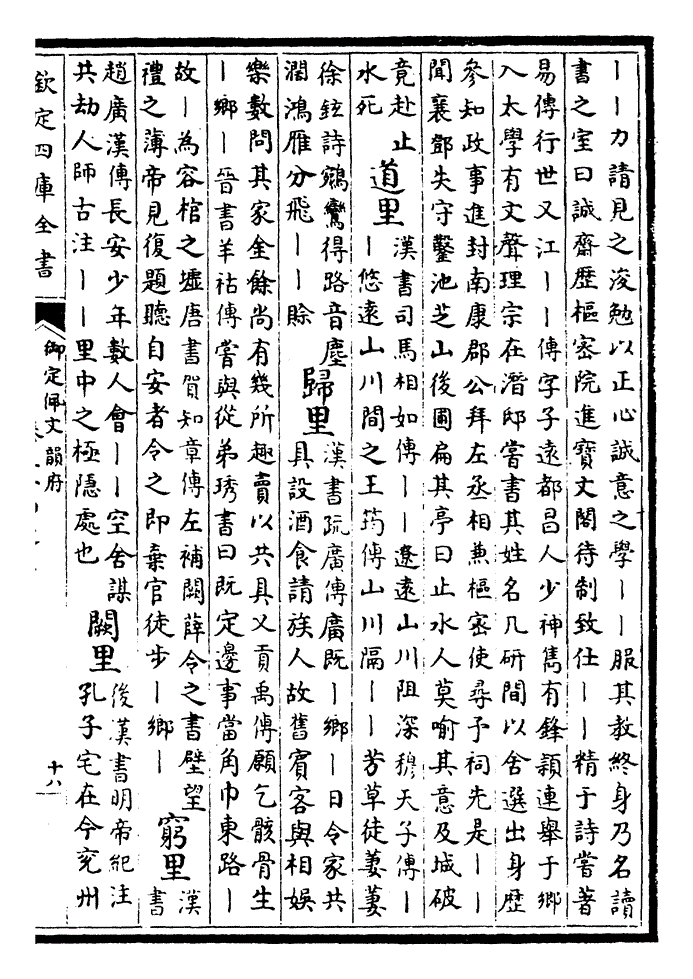 丨丨力請見之浚勉以正心誠意之學丨丨服其教終身乃名讀
書之室曰誠齋歴樞宻院進寳文閣待制致仕丨丨精于詩嘗著
易傳行世又江丨丨傳字子逺都昌人少神雋有鋒穎連舉于鄉
入太學有文聲理宗在潛邸嘗書其姓名几研間以舍選出身歴
參知政事進封南康郡公拜左丞相兼樞宻使尋予祠先是丨丨
聞襄鄧失守鑿池芝山後圃扁其亭曰止水人莫喻其意及城破
竟赴止
水死
道里
漢書司馬相如傳丨丨遼逺山川阻深穆天子傳丨
丨悠逺山川間之王筠傳山川隔丨丨芳草徒萋萋
徐鉉詩鵷鸞得路音塵
濶鴻雁分飛丨丨賒
歸里
漢書疏廣傳廣既丨鄉丨日令家共
具設酒食請族人故舊賔客與相娛
樂數問其家金餘尚有幾所趣賣以共具又貢禹傳願乞骸骨生
丨鄉丨晉書羊祜傳嘗與從弟琇書曰既定邊事當角巾東路丨
故丨為容棺之墟唐書賀知章傳左補闕薛令之書壁望
禮之薄帝見復題聽自安者令之即棄官徒步丨鄉丨
窮里
漢
書
趙廣漢傳長安少年數人會丨丨空舍謀
共劫人師古注丨丨里中之極隱處也
闕里
後漢書明帝紀注
孔子宅在今兖州
欽定四庫全書
御定佩文韻府
十八